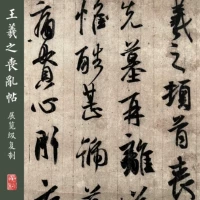 王羲之喪亂帖
展覽級复制
羲之頓首喪
先墓再離
惟酷甚號
痛貫心肝